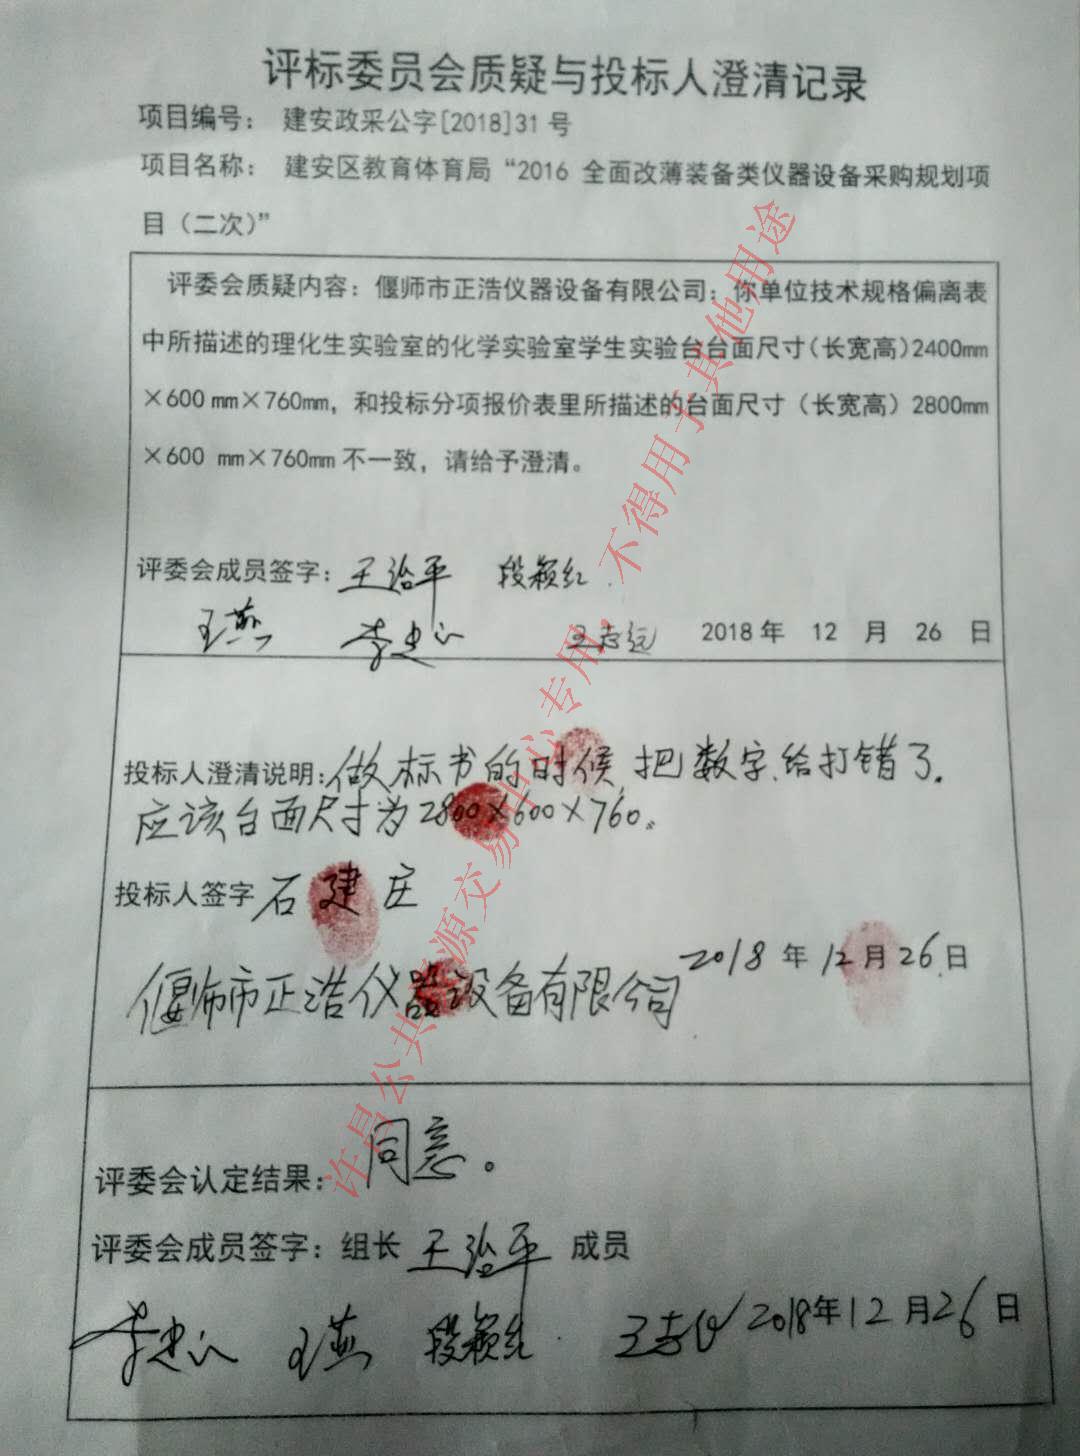 评标委员会质疑与投标人澄清记录
项目编号： 建安政采公字[2018]31 号
项目名称： 建安区教育体育局“2016 全面改薄装备类仪器设备采购规划项
目（二次）”
评委会质疑内容：偃师市正浩仪器设备有限公司：你单位技术规格偏离表
中所描述的理化生实验室的化学实验室学生实验台台面尺寸（长宽高）2400mm
×600 mm×760mm，和投标分项报价表里所描述的台面尺寸（长宽高）2800mm
×600 mm×760mm 不一致，请给予澄清。
评委会成员签字：王治平 段颖红
王燕 李忠 王志远 2018 年 12 月 26 日
投标人澄清说明：做标书的时候，把数字给打错了。
应该台面尺寸为2800×600×760。
投标人签字 石建庄
2018 年 12月26日
偃师市正浩仪器设备有限公司
评委会认定结果：同意。
评委会成员签字：组长 王治平 成员
李忠 王燕 段颖红 王志 2018年12月26日
许昌公共资源交易中心专用，不得用于其他用途